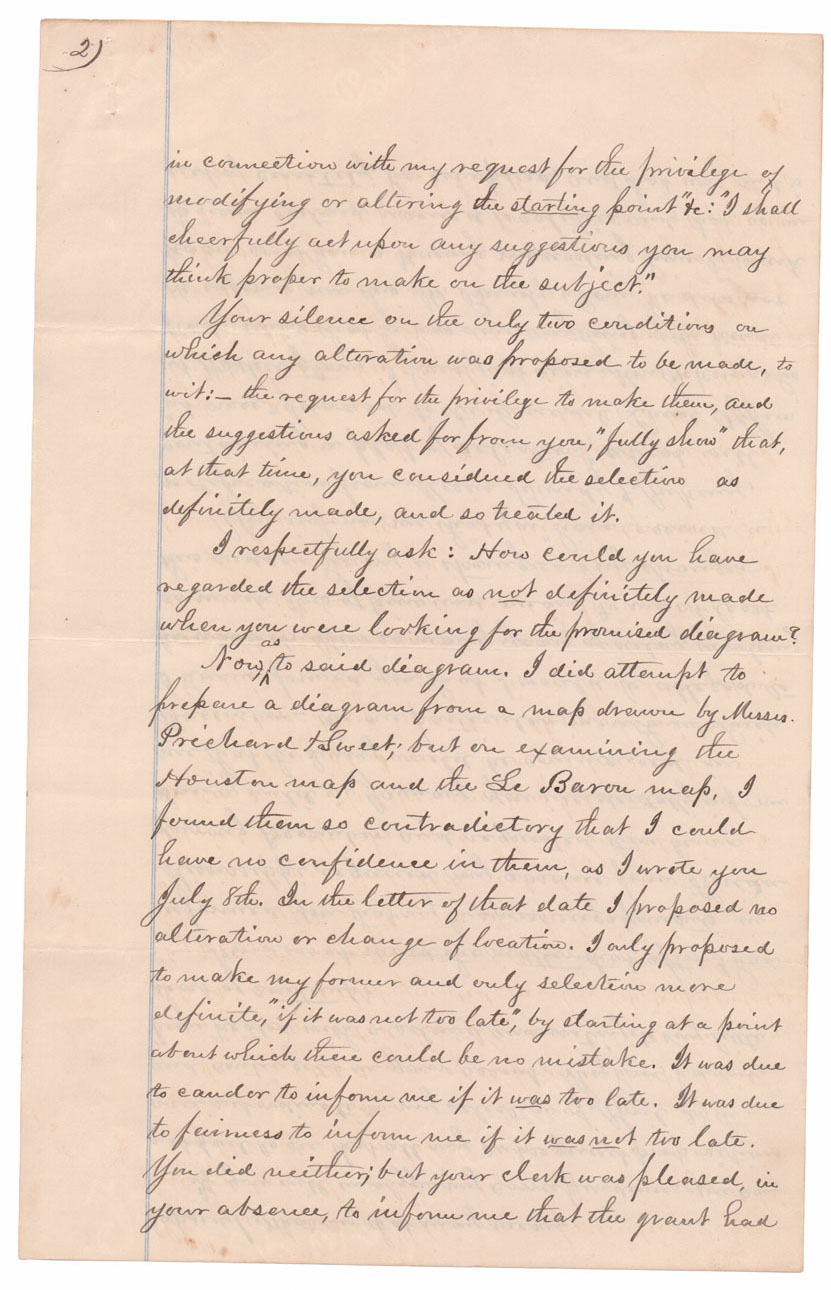 2)
in connection with my request for the privilege of
modifying or altering the starting point" &c: "I shall
cheerfully act upon any suggestions you may
think proper to make on the subject."
Your silence on the only two conditions on
which any alteration was proposed to be made, to
wit:— the request for the privilege to make them, and
the suggestions asked for from you, "fully show" that,
at that time, you considered the selection as
definitely made, and so treated it.
I respectfully ask: How could you have
regarded the selection as not definitely made
when you were looking for the promised diagram?
as
Now, to said diagram. I did attempt to
prepare a diagram from a map drawn by Messrs.
Prichard & Sweet; but on examining the
Houston map and the Le Baron map, I
found them so contradictory that I could
have no confidence in them, as I wrote you
July 8th. In the letter of that date I proposed no
alteration or change of location. I only proposed
to make my former and only selection more
definite, "if it was not too late", by starting at a point
about which there could be no mistake. It was due
to candor to inform me if it was too late. It was due
to fairness to inform me if it was not too late.
You did neither; but your clerk was pleased, in
your absence, to inform me that the grant had